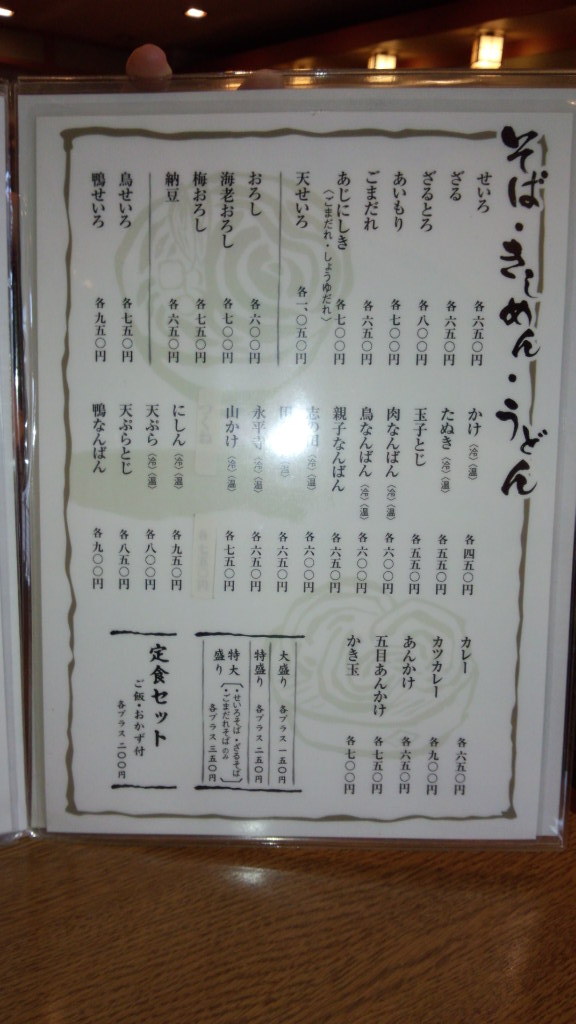 そば・きしめん・うどん
せいろ 各六五〇円
ざる 各六五〇円
ざるとろ 各八〇〇円
あいもり 各七〇〇円
ごまだれ 各六五〇円
あじにしき 各七〇〇円
〈ごまだれ・しょうゆだれ〉
天せいろ 各一、〇五〇円
おろし 各六〇〇円
海老おろし 各七〇〇円
梅おろし 各七五〇円
納豆 各六五〇円
鳥せいろ 各七五〇円
鴨せいろ 各九五〇円
かけ〈冷〉〈温〉 各四五〇円
たぬき〈冷〉〈温〉 各五五〇円
玉子とじ 各五五〇円
肉なんばん〈冷〉〈温〉 各六〇〇円
鳥なんばん〈冷〉〈温〉 各六〇〇円
親子なんばん 各六五〇円
各六〇〇円
各六五〇円
永平寺〈冷〉〈温〉 各六五〇円
山かけ〈冷〉〈温〉 各七五〇円
にしん〈冷〉〈温〉 各九五〇円
天ぷら〈冷〉〈温〉 各八〇〇円
天ぷらとじ 各八五〇円
鴨なんばん 各九〇〇円
カレー 各六五〇円
カツカレー 各九〇〇円
あんかけ 各六五〇円
五目あんかけ 各七五〇円
かき玉 各七〇〇円
大盛り 各プラス 一五〇円
特盛り 各プラス 二五〇円
特大盛り
・せいろそば・ざるそば
・ごまだれそばのみ
各プラス 三五〇円
定食セット
ご飯・おかず付
各プラス 二〇〇円